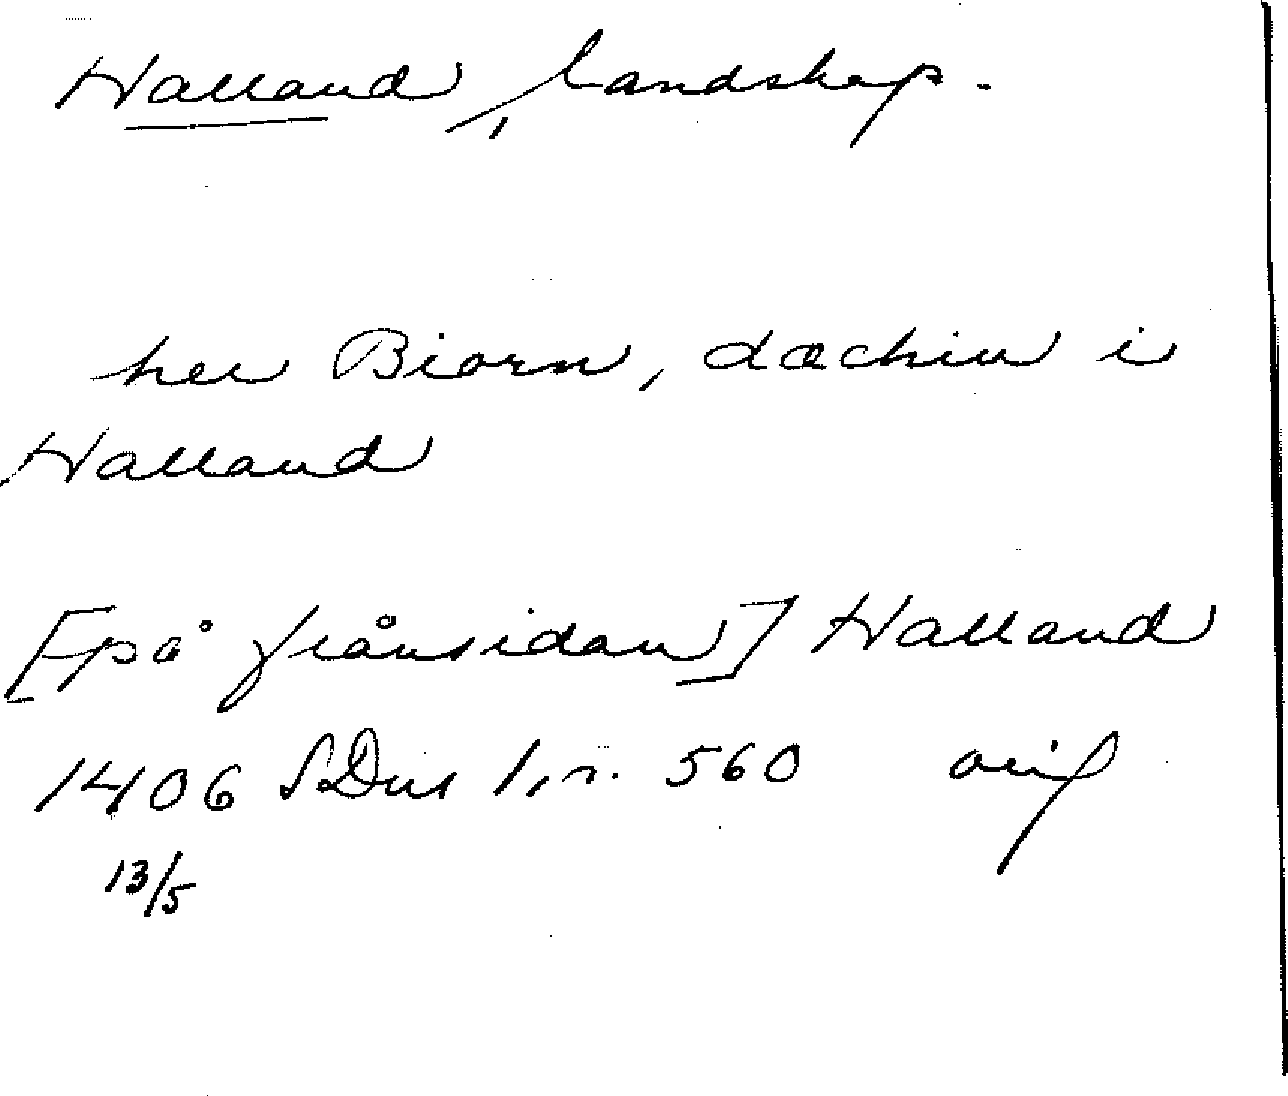 Halland, landskap.
her Biorn, dæchin i
Halland
[på frånsidan] Halland
1406 SDns 1, n. 560 orig
13/5